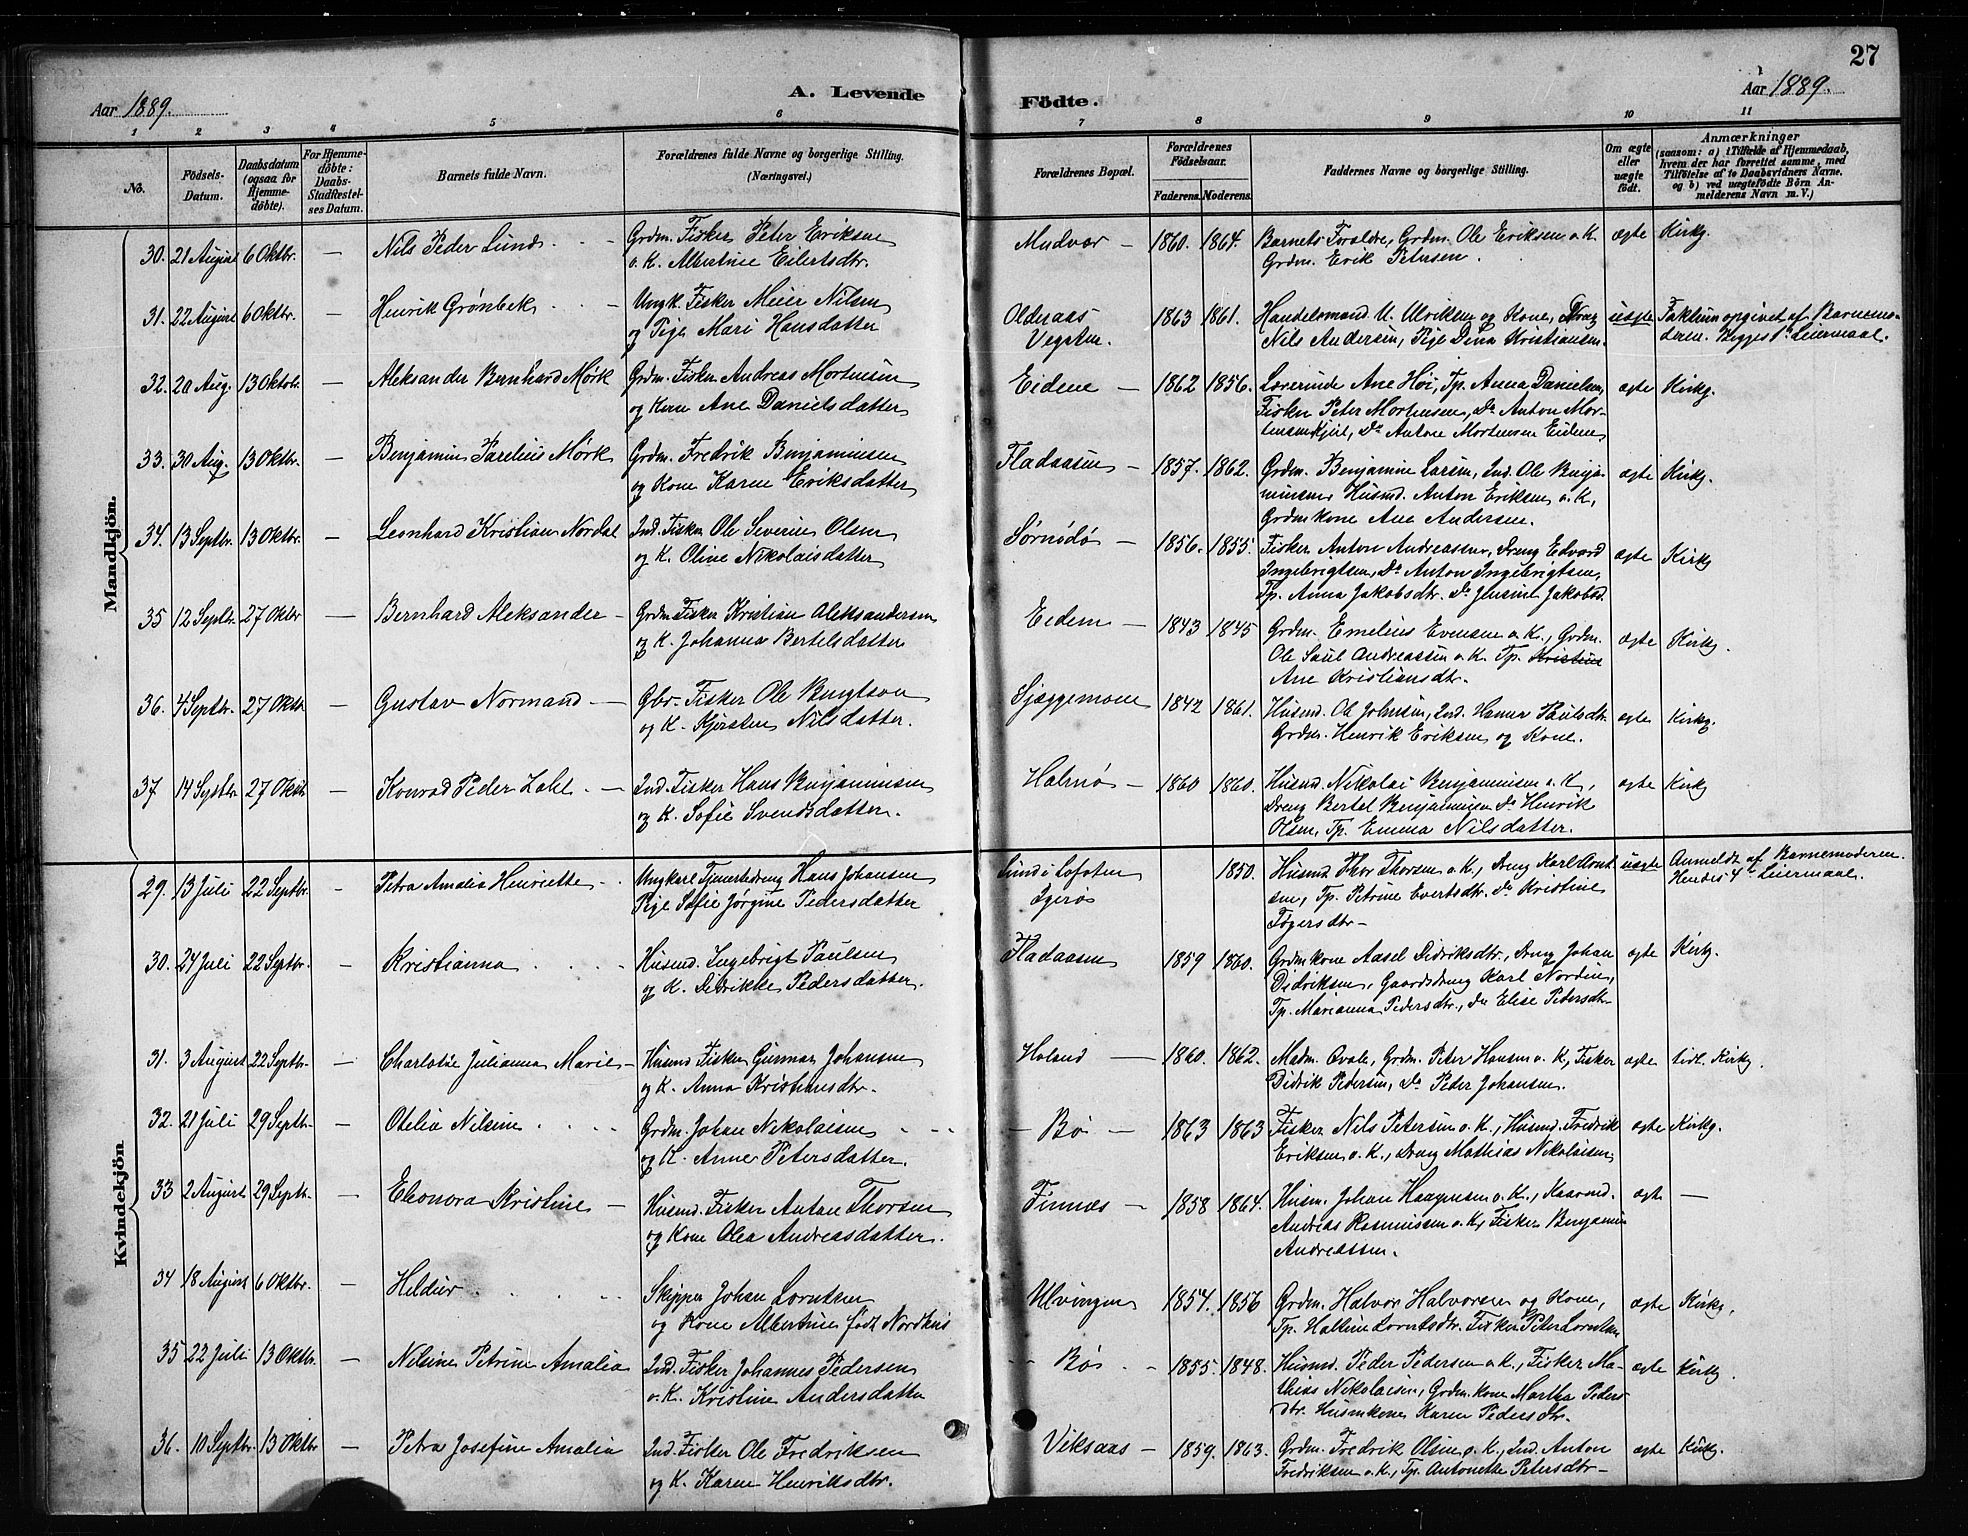 27
Aar 1889.
A. Levende Födte.
Aar 1889.
1 2 3 4 5 6 7 8 9 10 11
No.
Födsels-Datum.
Daabsdatum (ogsaa for Hjemme-döbte).
For Hjemme-döbte: Daabs-Stadfæstel-ses Datum.
Barnets fulde Navn.
Forældrenes fulde Navne og borgerlige Stilling. (Næringsvei.)
Forældrenes Bopæl.
Forældrenes Födselsaar.
Faderens. Moderens.
Faddernes Navne og borgerlige Stilling.
Om ægte eller uægte födt.
Anmærkninger (saasom: a) i Tilfælde af Hjemmedaab, hvem der har forrettet samme, med Tilföielse af to Daabsvidners Navne, og b) ved uægtefödte Börn An-melderens Navn m. V.)
Mandkjön.
30. 21 August 6 Oktbr. — Nils Peder Lund Grdm. Fisker Peter Eriksen Mudvær — 1860. 1864. Barnets Forældre, Grdm. Ole Eriksen o. K. ægte Kirkg.
o. K. Albertine Eilertsdtr. Grdm. Erik Petersen.
31. 22 August 6 Oktbr. — Henrik Grønbek Ungk. Fisker Meier Nilsen Olderaas 1863 1861. Handelsmand U. Ulriksen og Kone, Dreng uægte Faktum opgivet af Barnemo-
og Pige Mari Hansdatter Vegsten. Nils Andersen, Pige Dina Kristiansen. deren. Begges 1ste Leiermaal.
32. 20 Aug. 13 Oktbr. — Aleksander Bernhard Mørk Grdm. Fisker Andreas Mortensen Eidene — 1862 1856. Lærerinde Ane Høi, Tp. Anna Danielsen, ægte Kirkg.
og Kone Ane Danielsdatter Fisker Peter Mortensen, Do Anton Mor-
tensen Kjul, Do Antone Mortensen Eidene
33. 30 Aug. 13 Oktbr. — Benjamin Parelius Mørk Grdm. Fredrik Benjaminsen Fladaasen — 1857. 1862. Grdm. Benjamin Larsen, Ind. Ole Benja- ægte Kirkg.
og Kone Karen Eriksdatter minsen, Husmd. Anton Eriksen o. K,
Grdmkone Ane Andersen.
34. 13 Septbr. 13 Oktbr. — Leonhard Kristian Nordal Ind. Fisker Ole Severin Olsen Sørnødø — 1856. 1855. Fisker Anton Andreassen, Dreng Edvard ægte Kirkg
og K. Oline Nikolaisdatter Ingebrigtsen, Do Anton Ingebrigtsen,
Tp. Anna Jakobsdtr. Do Jensine Jakobsd.
35 12 Septbr. 27 Oktbr — Bernhard Aleksander — Grdm Fisker Kristian Aleksandersen Eidem — 1843 1845 Grdm. Emelius Evensen o. K., Grdm. ægte Kirkg.
og K. Johanna Bertelsdatter Ole Saul Andreassen o. K. Tp. Kristine
Ane Kristiansdtr.
36. 4 Septbr. 27 Oktbr — Gustav Normand — Gbr. Fisker Ole Bengtson Sjæggemoen 1842 1861. Husmd. Ole Johnsen, Ind. Hanna Paulsdtr. ægte Kirkg.
og K. Kjersten Nilsdatter. Grdm. Henrik Eriksen og Kone.
37 14 Septbr. 27 Oktbr — Konrad Peder Zahl — Ind. Fisker Hans Benjaminsen Halmø — 1860 1860. Husmd. Nikolai Benjaminsen o. K, ægte Kirkg
og K. Sofie Svendsdatter. Dreng Bertel Benjaminsen Do Henrik
Olsen, Tp. Emma Nilsdatter.
Kvindekjön.
29. 13 Juli 22 Septbr. — Petra Amalia Henriette Ungkarl Tjenestedreng Hans Johansen Sund i Lofoten 1850. Husmd. Thor Thorsen o. K., Dreng Karl uægte Anmeldt af Barnemoderen.
Pige Sofie Jørgine Pedersdatter Igerøs sen, Tp. Petrine Evertsdtr. Do Kristine Hendes 4de Leiermaal.
30. 24 Juli 22 Septbr. — Kristianna Husmd. Ingebrigt Paulsen Fladaasen 1859 1860. Grdmkone Aasel Didriksdtr., Dreng Johan ægte Kirkg.
og K. Didrikke Pedersdatter. Didriksen, Gaardsdreng Karl Nordin,
Tp. Marianna Pedersdtr., Do Elise Petersdtr
31. 3 August 22 Septbr. — Charlotte Julianna Marie — Husmd Fisker Gunnar Johansen Holand — 1860. 1862. Madm. Qvale, Grdm. Peter Hansen o. K, Fisker ægte tidl. Kirkg.
og K. Anna Kristiansdtr. Didrik Petersen, Do Peder Johansen.
32. 21 Juli 29 Septbr. — Otelia Nilsine Grdm. Johan Nikolaisen — Bø — 1863 1863 Fisker Nils Petersen o. K., Husmd. Fredrik ægte Kirkg.
og K. Anne Petersdatter. Eriksen o. K., Dreng Mathias Nikolaisen
33 2 August 29 Septbr. — Eleonora Kristine — Husmd. Fisker Anton Thorsen Finnæs — 1858 1864. Husm. Johan Haagensen o. K., Kaarmd. ægte —
og Kone Olea Andreasdatter. Andreas Rasmussen o. K, Fisker Benjamin
Andreassen.
34 18 August 6 Oktbr. — Heldur Skipper Johan Lorntsen Ulvingen 1854. 1856 Grdm. Halvor Halvorsen og Kone, ægte Kirkg.
og Kone Albertine født Nordhus Tp. Halline Lorntsdtr. Fisker Peter Lorntsen
35 22 Juli 13 Oktbr. — Nilsine Petrine Amalia Ind. Fisker Johannes Pedersen Bø — 1855. 1848. Husmd. Peder Pedersen o. K., Fisker Ma- ægte Kirkg.
o. K. Kristine Andersdatter thias Nikolaisen, Grdm. kone Martha Peders
dtr. Husmkone Karen Pedersdtr.
36. 10 Septbr. 13 Oktbr — Petra Josefine Amalia Ind. Fisker Ole Fredriksen Viksaas — 1859. 1863. Grdm. Fredrik Olsen o. K., Ind. Anton ægte Kirkg.
og K. Karen Henriksdtr. Fredriksen o. K., Tp. Antonette Petersdtr —